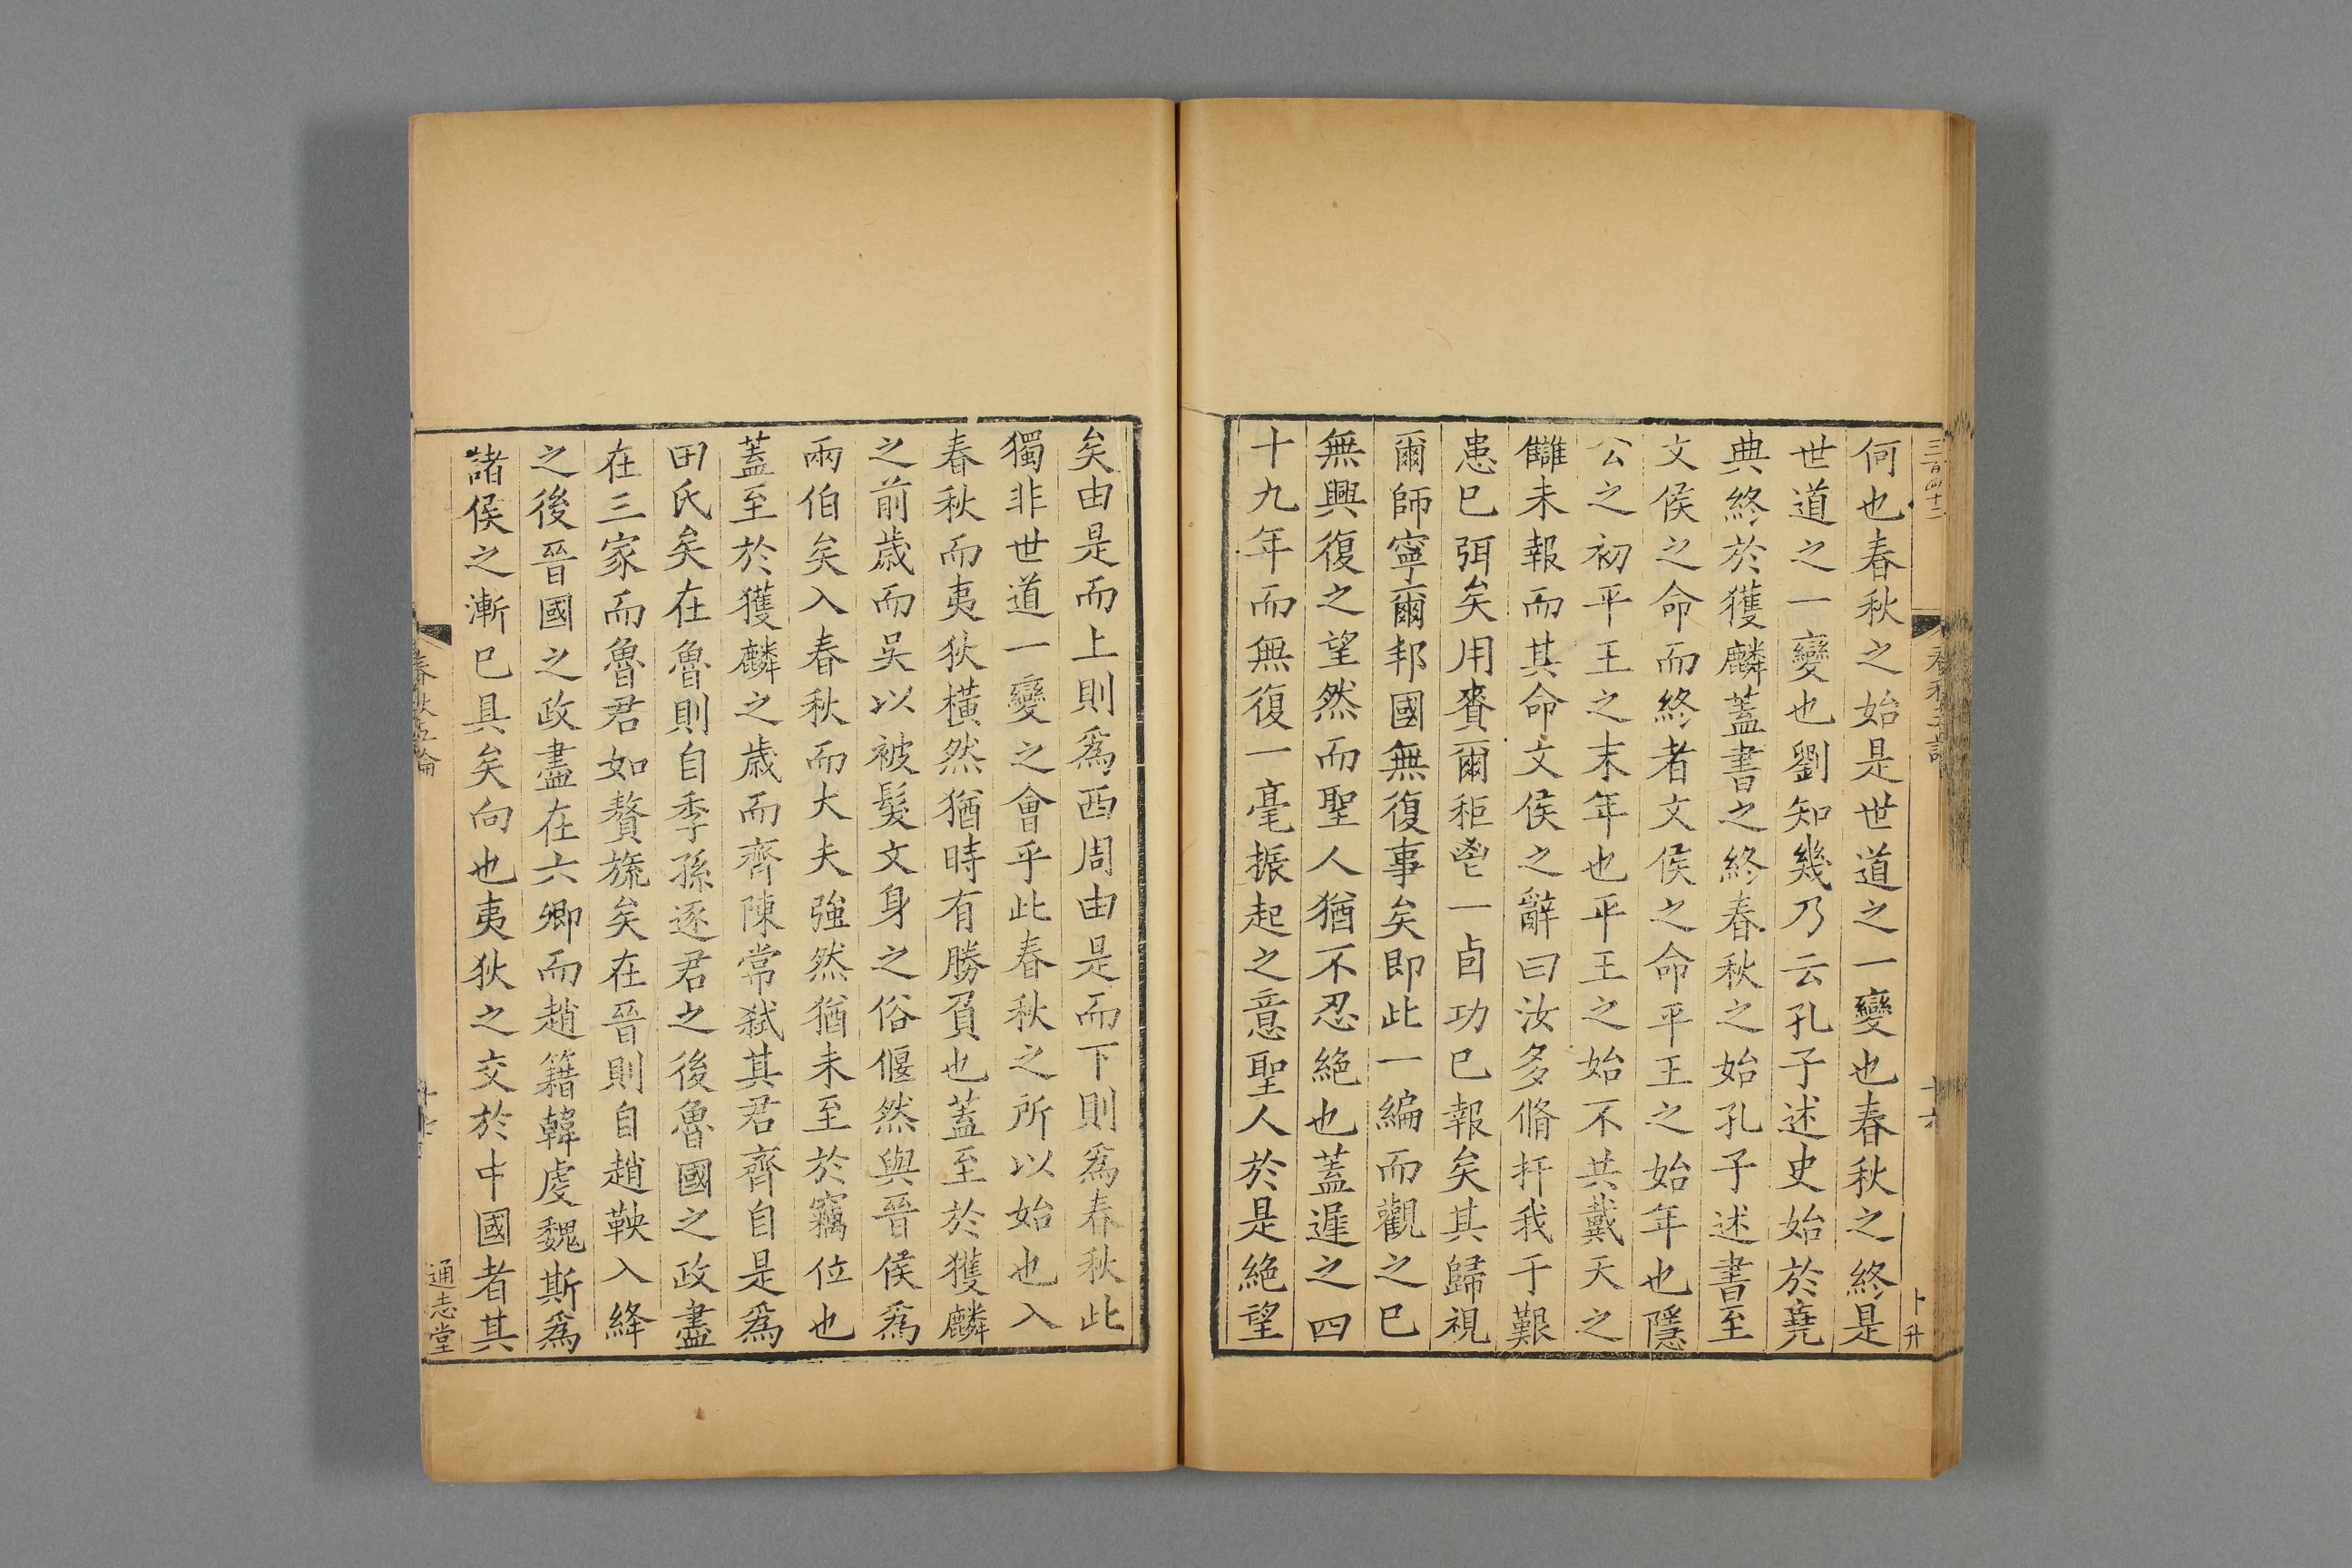 何也春秋之始是世道之一變也春秋之終是
世道之一變也劉知幾乃云孔子述史始於堯
典終於獲麟蓋書之終春秋之始孔子述書至
文侯之命而終者文侯之命平王之始年也隱
公之初平王之末年也平王之始不共戴天之
讎未報而其命文侯之辭曰汝多脩扞我于艱
患已弭矣用賚爾秬鬯一卣功已報矣其歸視
爾師寧爾邦國無復事矣即此一編而觀之已
無興復之望然而聖人猶不忍絕也蓋遲之四
十九年而無復一毫振起之意聖人於是絕望
矣由是而上則爲西周由是而下則爲春秋此
獨非世道一變之會乎此春秋之所以始也入
春秋而夷狄橫然猶時有勝負也蓋至於獲麟
之前歲而吳以被髮文身之俗偃然與晉侯爲
兩伯矣入春秋而大夫強然猶未至於竊位也
蓋至於獲麟之歲而齊陳常弑其君齊自是爲
田氏矣在魯則自季孫逐君之後魯國之政盡
在三家而魯君如贅旒矣在晉則自趙鞅入絳
之後晉國之政盡在六卿而趙籍韓虔魏斯爲
諸侯之漸已具矣向也夷狄之交於中國者其
春秋五論
通志堂